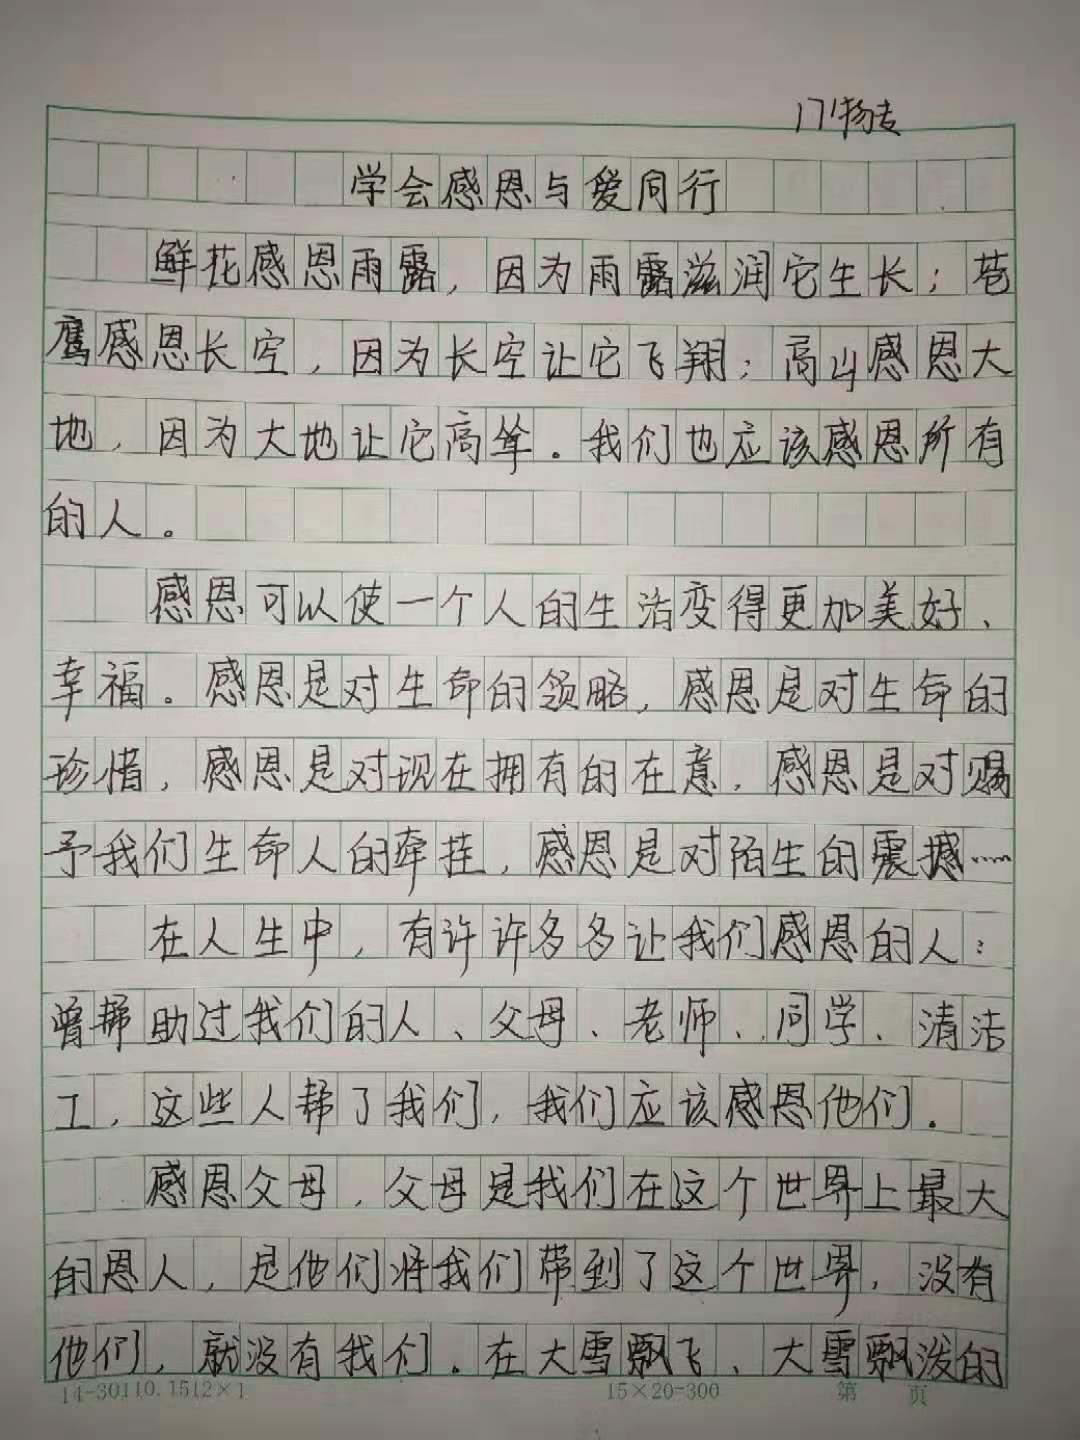 171杨专
学会感恩与爱同行
鲜花感恩雨露，因为雨露滋润它生长；苍
鹰感恩长空，因为长空让它飞翔；高山感恩大
地，因为大地让它高耸。我们也应该感恩所有
的人。
感恩可以使一个人的生活变得更加美好、
幸福。感恩是对生命的领略，感恩是对生命的
珍惜，感恩是对现在拥有的在意，感恩是对赐
予我们生命人的牵挂，感恩是对陌生的震撼……
在人生中，有许许多多让我们感恩的人：
曾帮助过我们的人、父母、老师、同学、清洁
工，这些人帮了我们，我们应该感恩他们。
感恩父母，父母是我们在这个世界上最大
的恩人，是他们将我们带到了这个世界，没有
他们，就没有我们。在大雪飘飞、大雪飘泼的
14-30110.1512×1 15×20=300 第 页